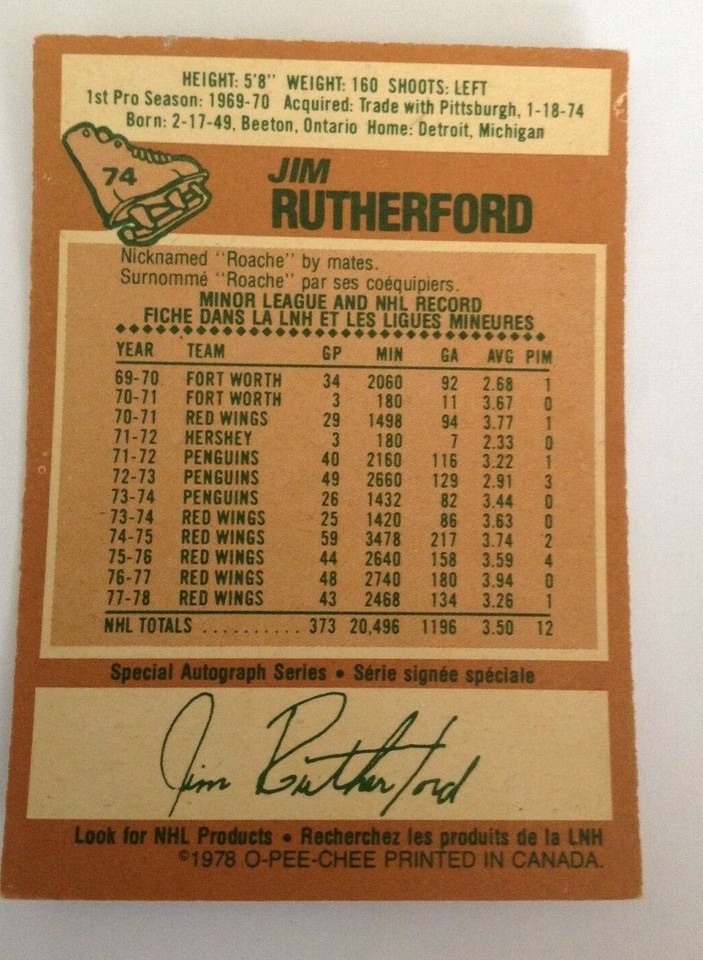 HEIGHT: 5'8" WEIGHT: 160 SHOOTS: LEFT
1st Pro Season: 1969-70 Acquired: Trade with Pittsburgh, 1-18-74
Born: 2-17-49, Beeton, Ontario Home: Detroit, Michigan
74
JIM
RUTHERFORD
Nicknamed "Roache" by mates.
Surnommé "Roache" par ses coéquipiers.
MINOR LEAGUE AND NHL RECORD
FICHE DANS LA LNH ET LES LIGUES MINEURES
YEAR TEAM GP MIN GA AVG PIM
69-70 FORT WORTH 34 2060 92 2.68 1
70-71 FORT WORTH 3 180 11 3.67 0
70-71 RED WINGS 29 1498 94 3.77 1
71-72 HERSHEY 3 180 7 2.33 0
71-72 PENGUINS 40 2160 116 3.22 1
72-73 PENGUINS 49 2660 129 2.91 3
73-74 PENGUINS 26 1432 82 3.44 0
73-74 RED WINGS 25 1420 86 3.63 0
74-75 RED WINGS 59 3478 217 3.74 2
75-76 RED WINGS 44 2640 158 3.59 4
76-77 RED WINGS 48 2740 180 3.94 0
77-78 RED WINGS 43 2468 134 3.26 1
NHL TOTALS .......... 373 20,496 1196 3.50 12
Special Autograph Series • Série signée spéciale
Jim Rutherford
Look for NHL Products • Recherchez les produits de la LNH
©1978 O-PEE-CHEE PRINTED IN CANADA.